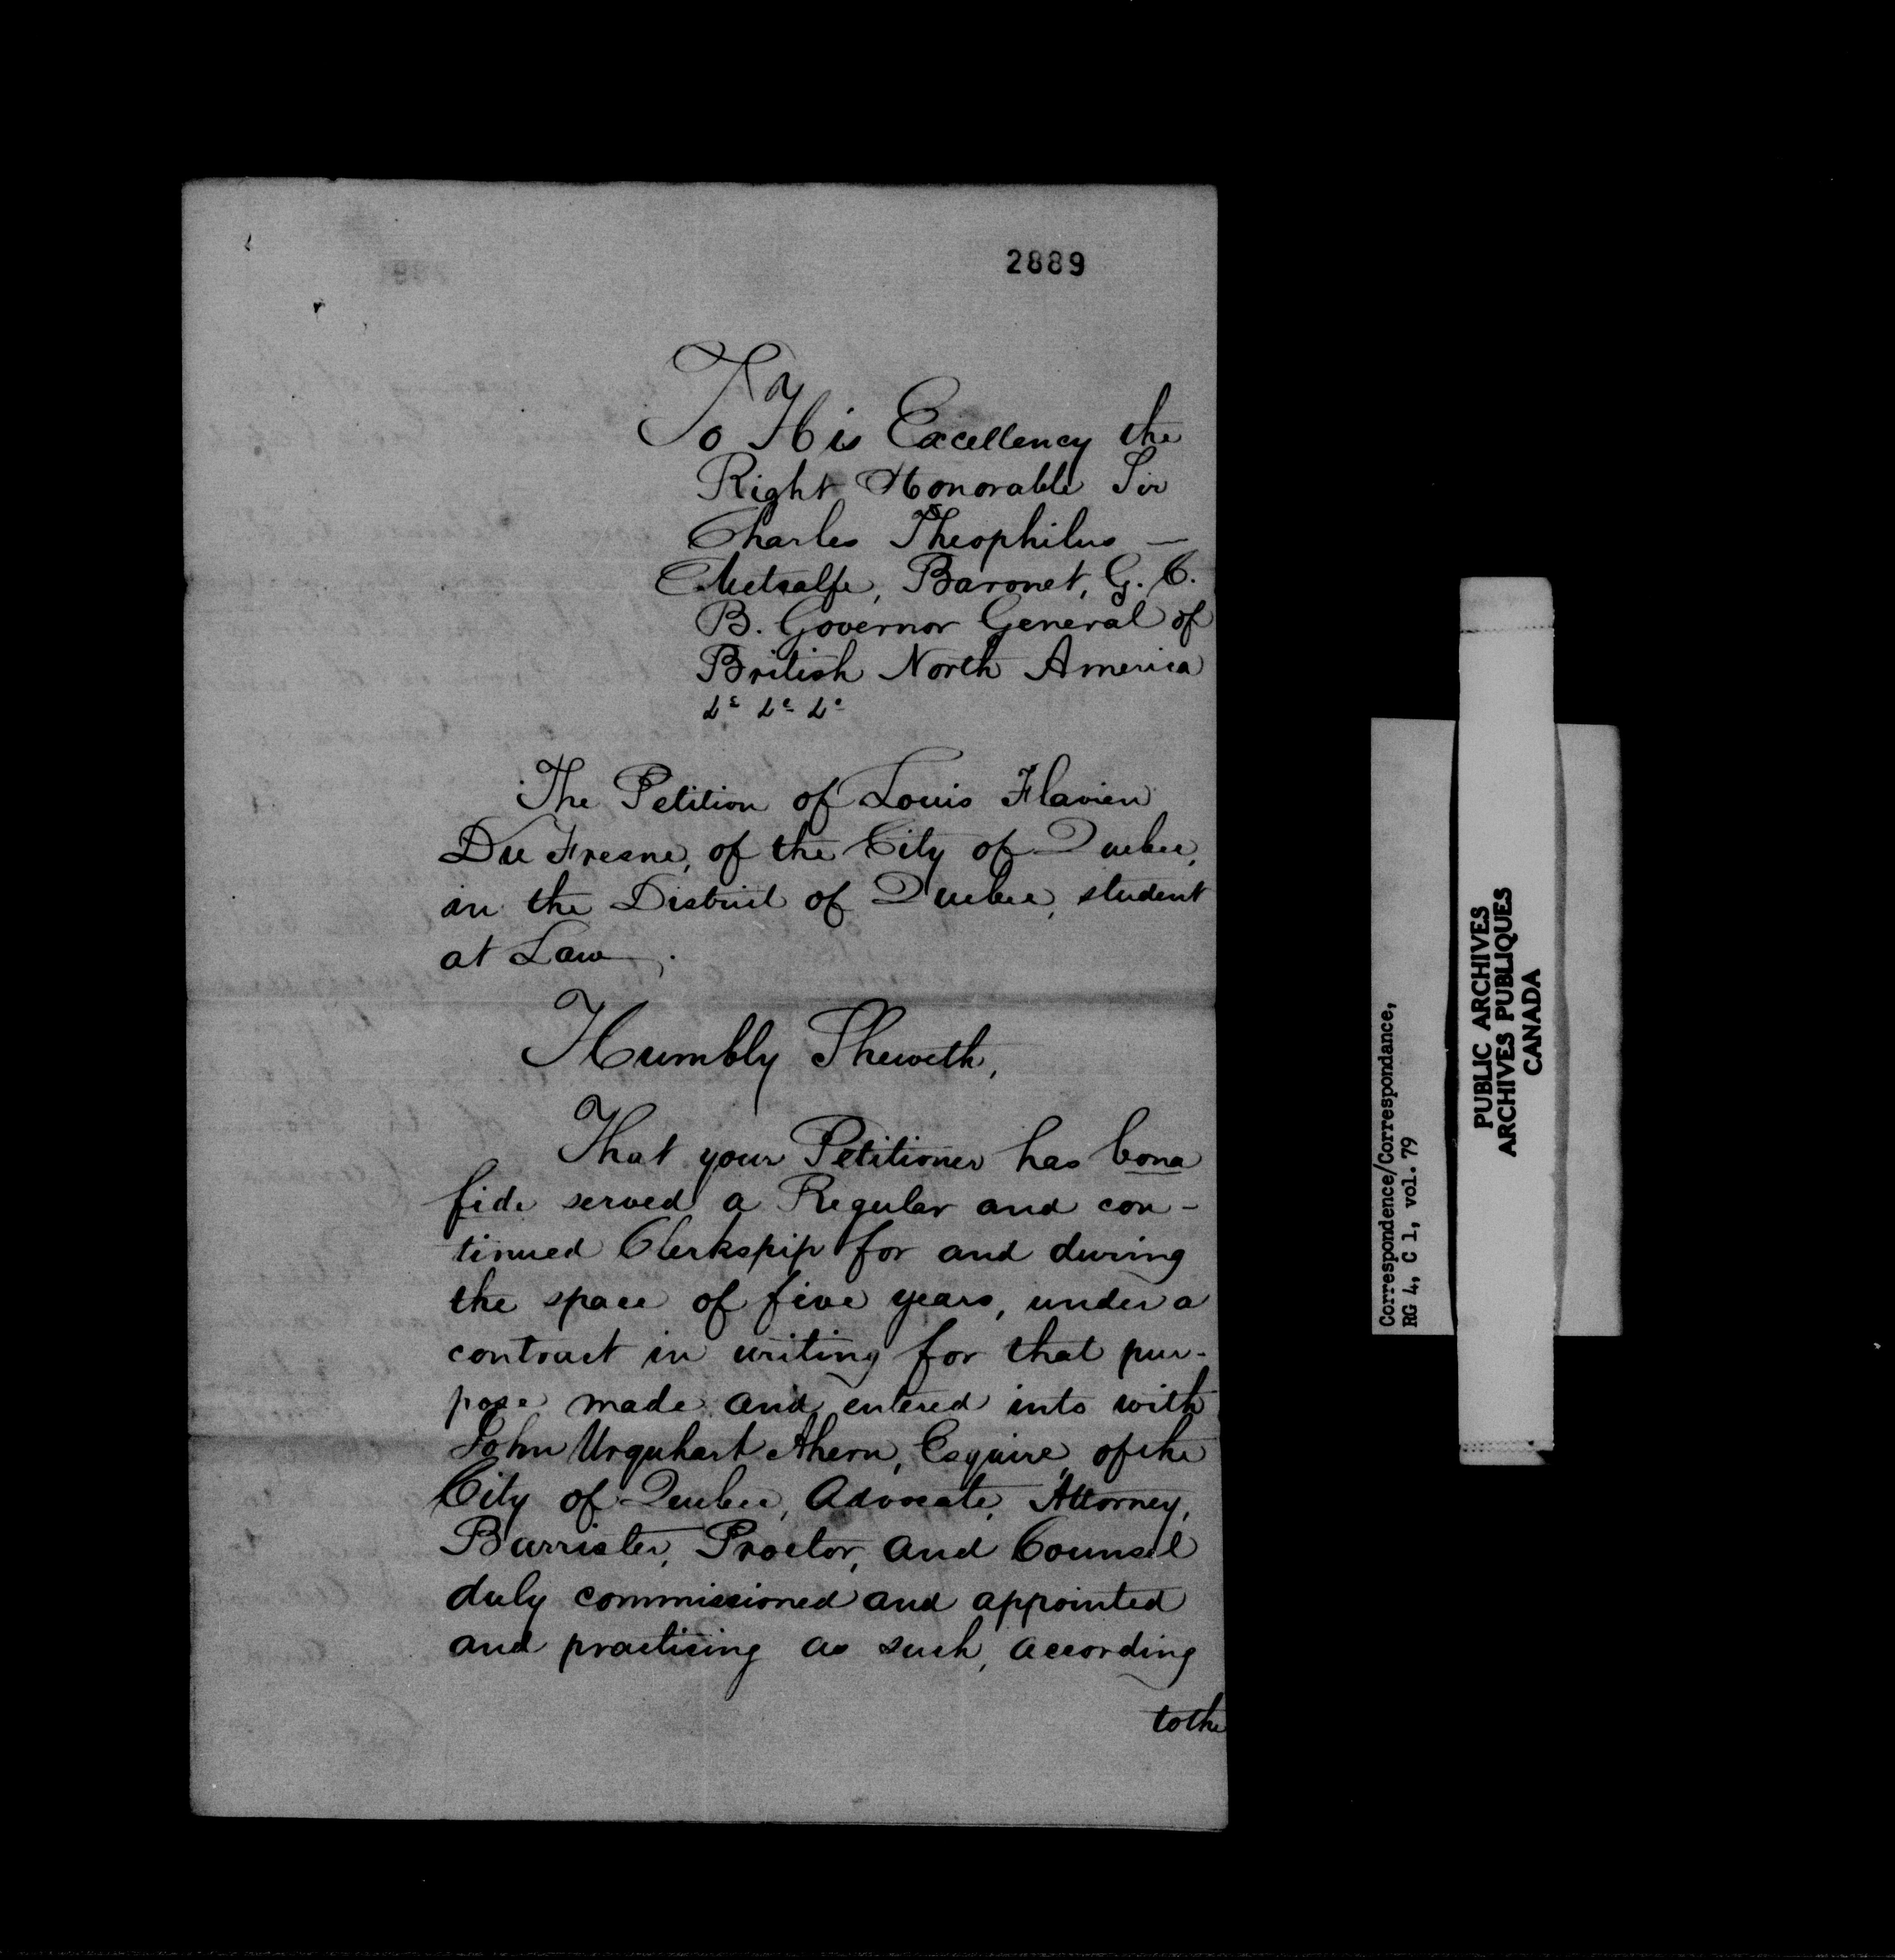 2889
To His Excellency the
Right Honorable Sir
Charles Theophilus —
Metcalfe, Baronet, G. C.
B. Governor General of
British North America
&c &c &c
The Petition of Louis Flavien
Du Fresne, of the City of Quebec,
in the District of Quebec, student
at Law.
Humbly Sheweth,
That your Petitioner has bona
fide served a Regular and con-
tinued Clerkspip for and during
the space of five years, under a
contract in writing for that pur-
pose made and entered into with
John Urquhart Ahern, Esquire, of the
City of Quebec, Advocate, Attorney,
Barrister, Proctor, and Counsel
duly commissioned and appointed
and practising as such, according
to the
Correspondence/Correspondance,
RG 4, C 1, vol. 79
PUBLIC ARCHIVES
ARCHIVES PUBLIQUES
CANADA